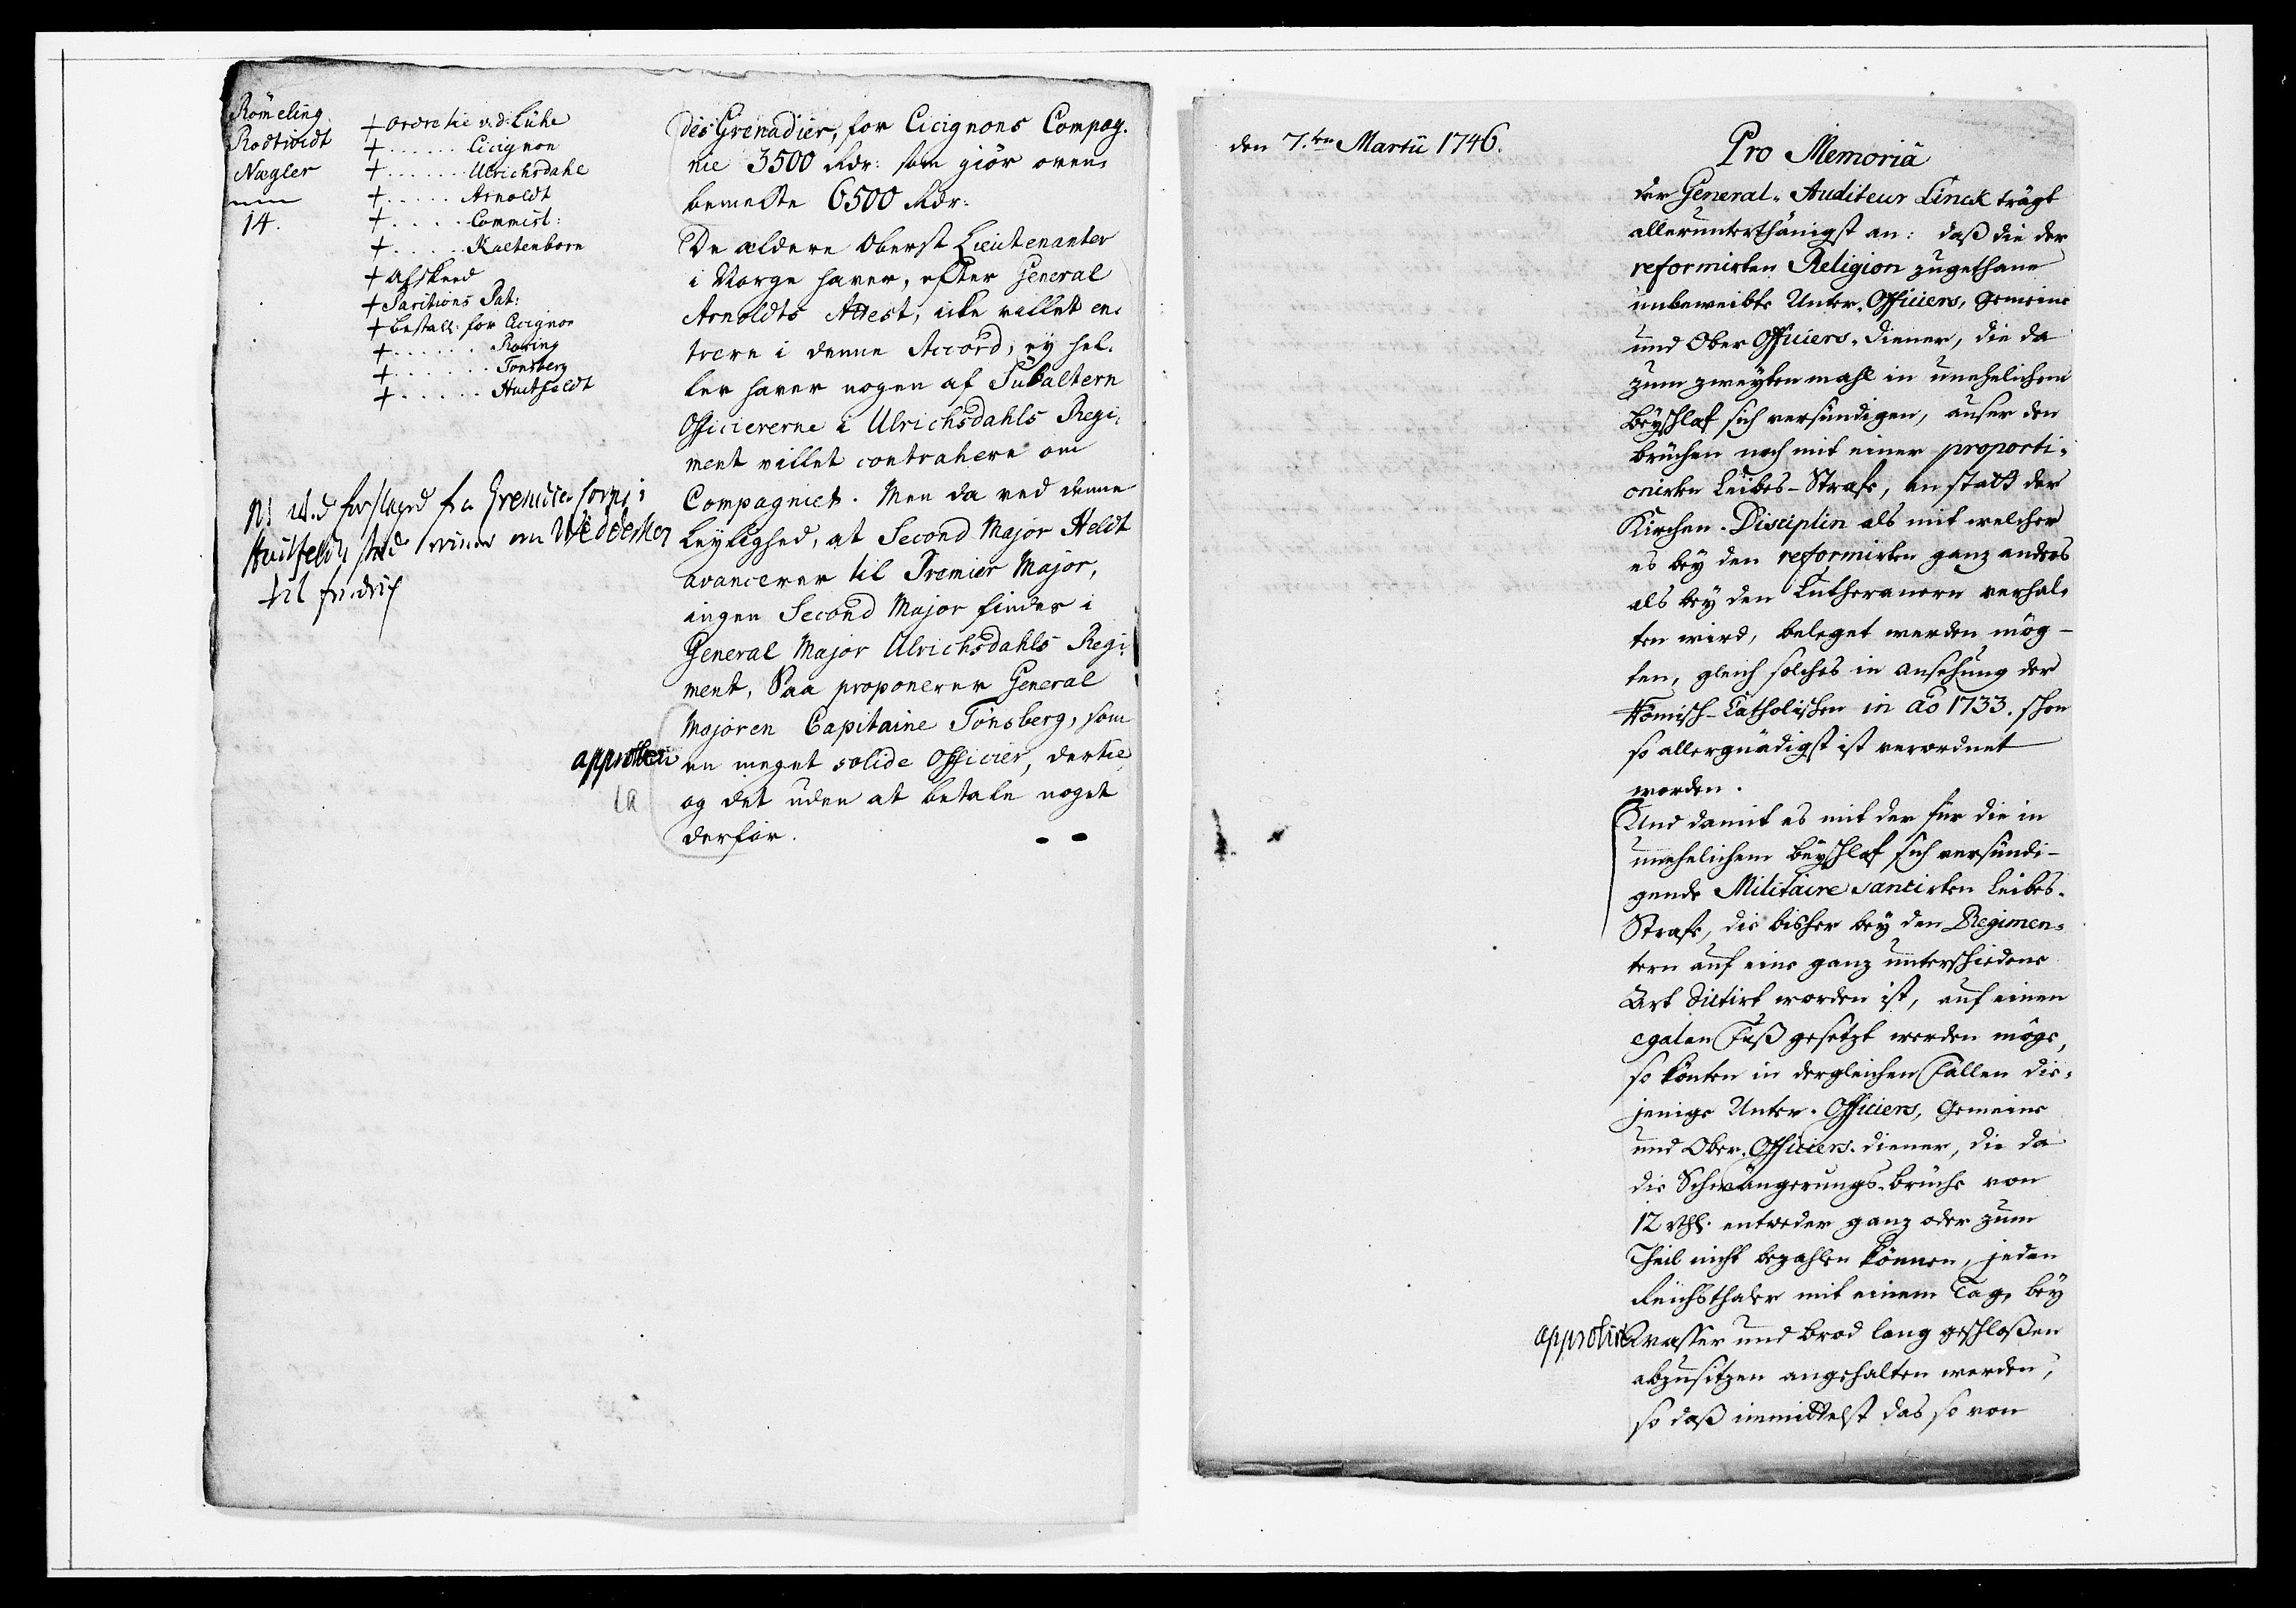 Römeling
Rodtwidt
Nægler
14.
+ Ordre til v. d. Lühe
+ . . . . . . Cicignon
+ . . . . . . . Ulrichsdahl
+ . . . . . Arnoldt
+ . . . . . Commiss:
+ . . . . . Kaltenborn
+ Afskeed
+ Paritions Pat:
+ bestall: for Cicignon
+ . . . . . . Roring
+ . . . . . . . Tønsberg
+ . . . . . Huitfeldt
forslagend fra Grenadier
Huitfeldts sted
til fridrich
des Grenadier, for Cicignons Compag-
nie 3500 Rdr: som giör oven-
bemelte 6500 Rdr:
De ældere Oberst Lieutenanter
i Norge haver, efter General
Arnoldts Attest, icke villet en-
trere i denne Accord, ey hel-
ler haver nogen af Subaltern
Officiererne i Ulrichsdahls Regi-
ment villet contrahere om
Compagniet. Men da ved denne
Leylighed, at Second Major Heldt
avancerer til Premier Major,
ingen Second Major findes i
General Major Ulrichsdahls Regi-
ment, Saa proponerer General
Majoren Capitaine Tønsberg, som
approberi en meget solide Officier, dertil
og det uden at betale noget
derfor.
den 7.ten Martii 1746.
Pro Memoriâ
der General-Auditeur Linck trägt
allerunterthänigst an: daß die der
reformirten Religion zugethane
unbeweibte Unter-Officiers, Gemeine
und Ober Officiers-Diener, die da
zum zweytenmahl in unehelichem
Beyschlaf sich versündigen, auser den
brüchen noch mit einer proporti-
onirten Leibes-Strafe, an statt der
Kirchen-Disciplin als mit welcher
es bey den reformirten ganz anders
als bey den Lutheranern verhal-
ten wird, beleget werden mög-
ten, gleich solches in ansehung der
Römisch-Catholischen in ao 1733. schon
so allergnädigst ist verordnet
worden.
Und damit es mit der für die in
unehelichem Beyschlaf sich versündi-
gende Militaire sancirten Leibes-
Strafe, die bisher bey den Regimen-
tern auf eine ganz unterschiedene
Art dictirt worden ist, auf einen
egalen Fuß gesetzt werden möge,
so könten in dergleichen Fällen die-
jenige Unter-Officiers, Gemeine
und Ober-Officiers-diener, die da
die Schwängerungs-brüche von
12 Rthl. entweder ganz oder zum
Theil nicht bezahlen können, jeden
Reichsthaler mit einem Tag, bey
approbirt Wasser und Brod lang geschloßen
abzusitzen angehalten werden,
so daß immittelst das so von